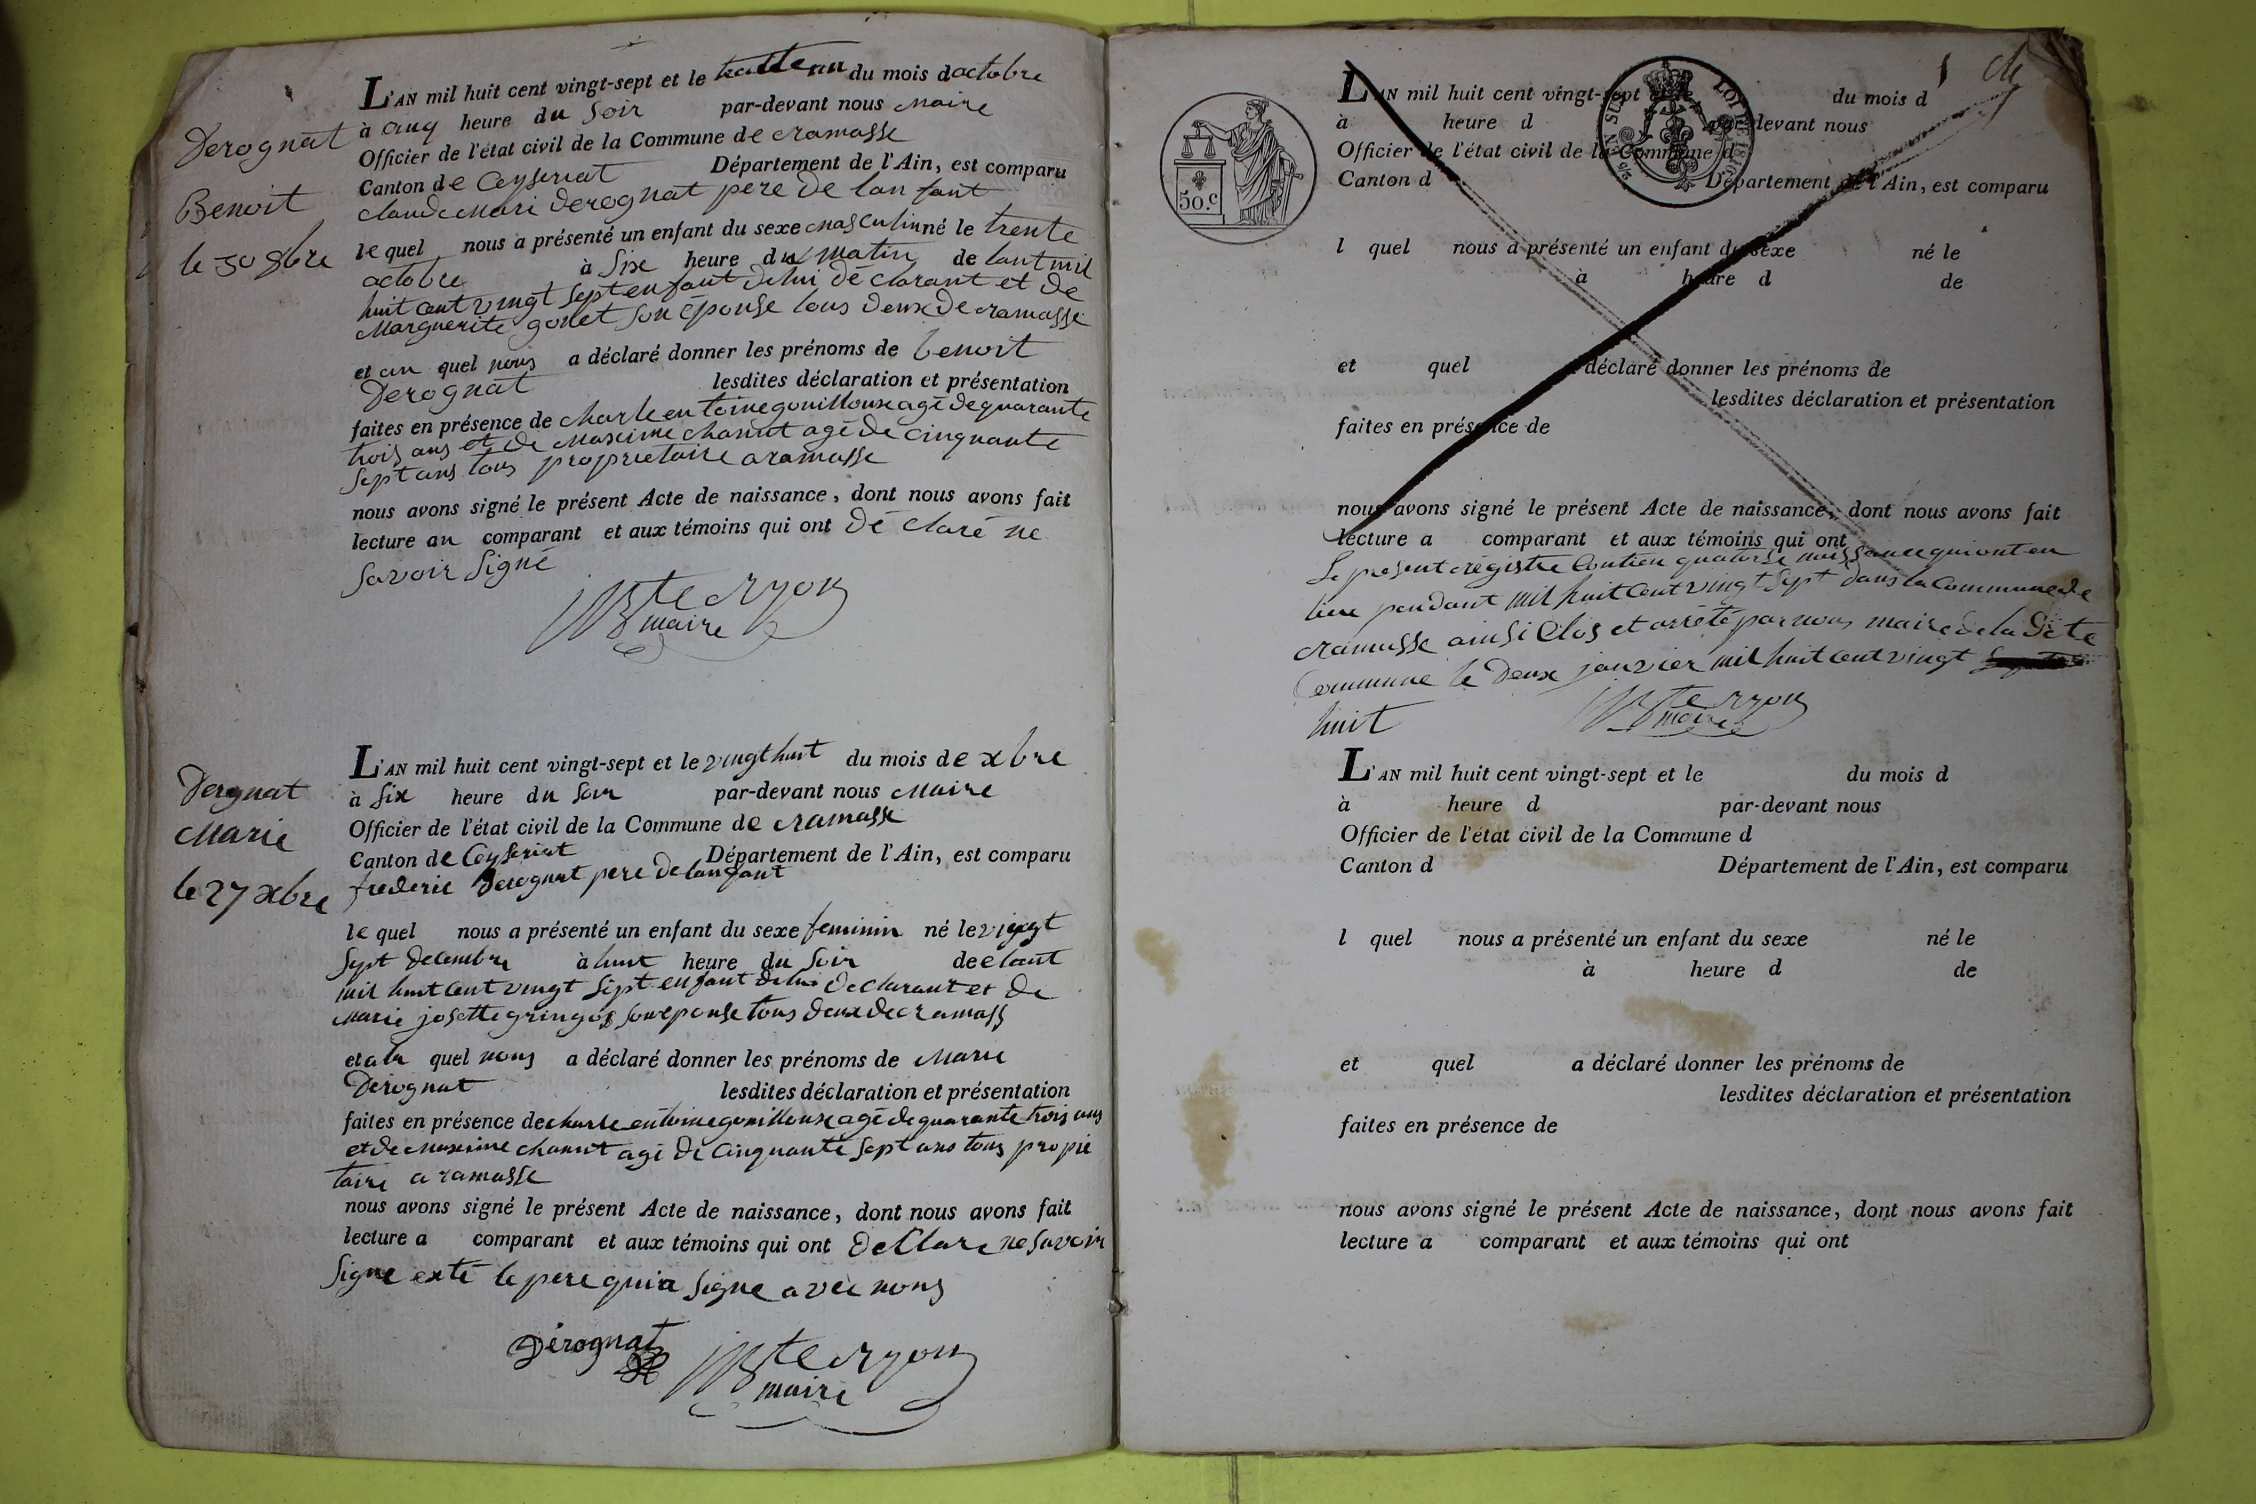 Derognat
Benoit
le 30 8bre
L'AN mil huit cent vingt-sept et le trente un du mois doctobre
à cinq heure du Soir par-devant nous Maire
Officier de l'état civil de la Commune de ramasse
Canton de Ceyseriat Département de l'Ain, est comparu
claude Mari derognat pere de lanfant
le quel nous a présenté un enfant du sexe masculin né le trente
octobre à Six heure du matin de lant mil
huit cent vingt Sept enfant de lui déclarant et de
Marguerite gonet son éponse tous deux de ramasse
et au quel nous a déclaré donner les prénoms de benoit
Derognat lesdites déclaration et présentation
faites en présence de charle entoine gouilloux agé de quarante
trois ans et de Maxime chanut agé de cinquante
Sept ans tous proprietaire a ramasse
nous avons signé le présent Acte de naissance, dont nous avons fait
lecture au comparant et aux témoins qui ont dé claré ne
savoir Signé
maire
Derognat
Marie
le 27 xbre
L'AN mil huit cent vingt-sept et le vingt huit du mois de xbre
à six heure du soir par-devant nous Maire
Officier de l'état civil de la Commune de ramasse
Canton de Ceyseriat Département de l'Ain, est comparu
frederic Derognat pere de lanfant
le quel nous a présenté un enfant du sexe feminin né le vingt
Sept decembre à huit heure du Soir de elant
mil huit cent vingt Sept enfant de lui declarant et de
Marie josette gringoz son eponse tous deux de ramass
et a la quel nous a déclaré donner les prénoms de Marie
Derognat lesdites déclaration et présentation
faites en présence de charle entoine gouilloux agé de quarante trois ans
et de Maxime chanut agé de cinquante Sept ans tous propie
taire a ramasse
nous avons signé le présent Acte de naissance, dont nous avons fait
lecture a comparant et aux témoins qui ont declare ne savoir
signe exté le pere qui a signe avec nous
Dérognat
maire
1
50.c
LOI DE 1816
L'AN mil huit cent vingt-sept et le du mois d
à heure d par-devant nous
Officier de l'état civil de la Commune d
Canton d Département de l'Ain, est comparu
l quel nous a présenté un enfant du sexe né le
à heure d de
et quel a déclaré donner les prénoms de
lesdites déclaration et présentation
faites en présence de
nous avons signé le présent Acte de naissance, dont nous avons fait
lecture a comparant et aux témoins qui ont
Le present régistre Contien quatorse naissance qui ont eu
lieu pendant mil huit cent vingt Sept dans la commune de
ramasse ainsi Clos et arrété par nous maire de la Dite
Commune le deux janvier mil huit cent vingt
huit
maire
L'AN mil huit cent vingt-sept et le du mois d
à heure d par-devant nous
Officier de l'état civil de la Commune d
Canton d Département de l'Ain, est comparu
l quel nous a présenté un enfant du sexe né le
à heure d de
et quel a déclaré donner les prénoms de
lesdites déclaration et présentation
faites en présence de
nous avons signé le présent Acte de naissance, dont nous avons fait
lecture a comparant et aux témoins qui ont